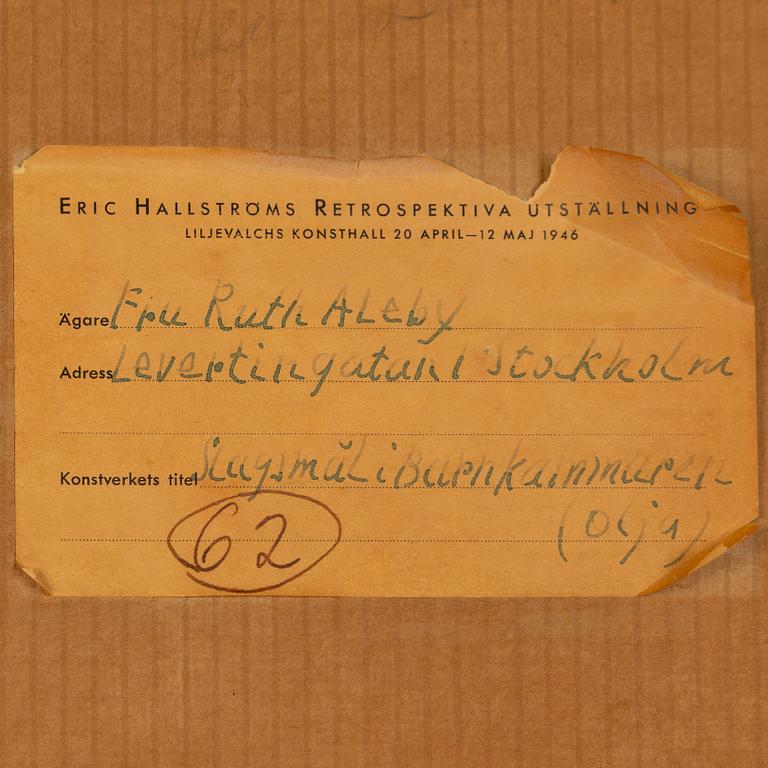 ERIC HALLSTRÖMS RETROSPEKTIVA UTSTÄLLNING
LILJEVALCHS KONSTHALL 20 APRIL—12 MAJ 1946
Ägare Fru Ruth Aleby
Adress Levertingatan 1 Stockholm
Konstverkets titel Slagsmål i Barnkammaren
62 (Olja)